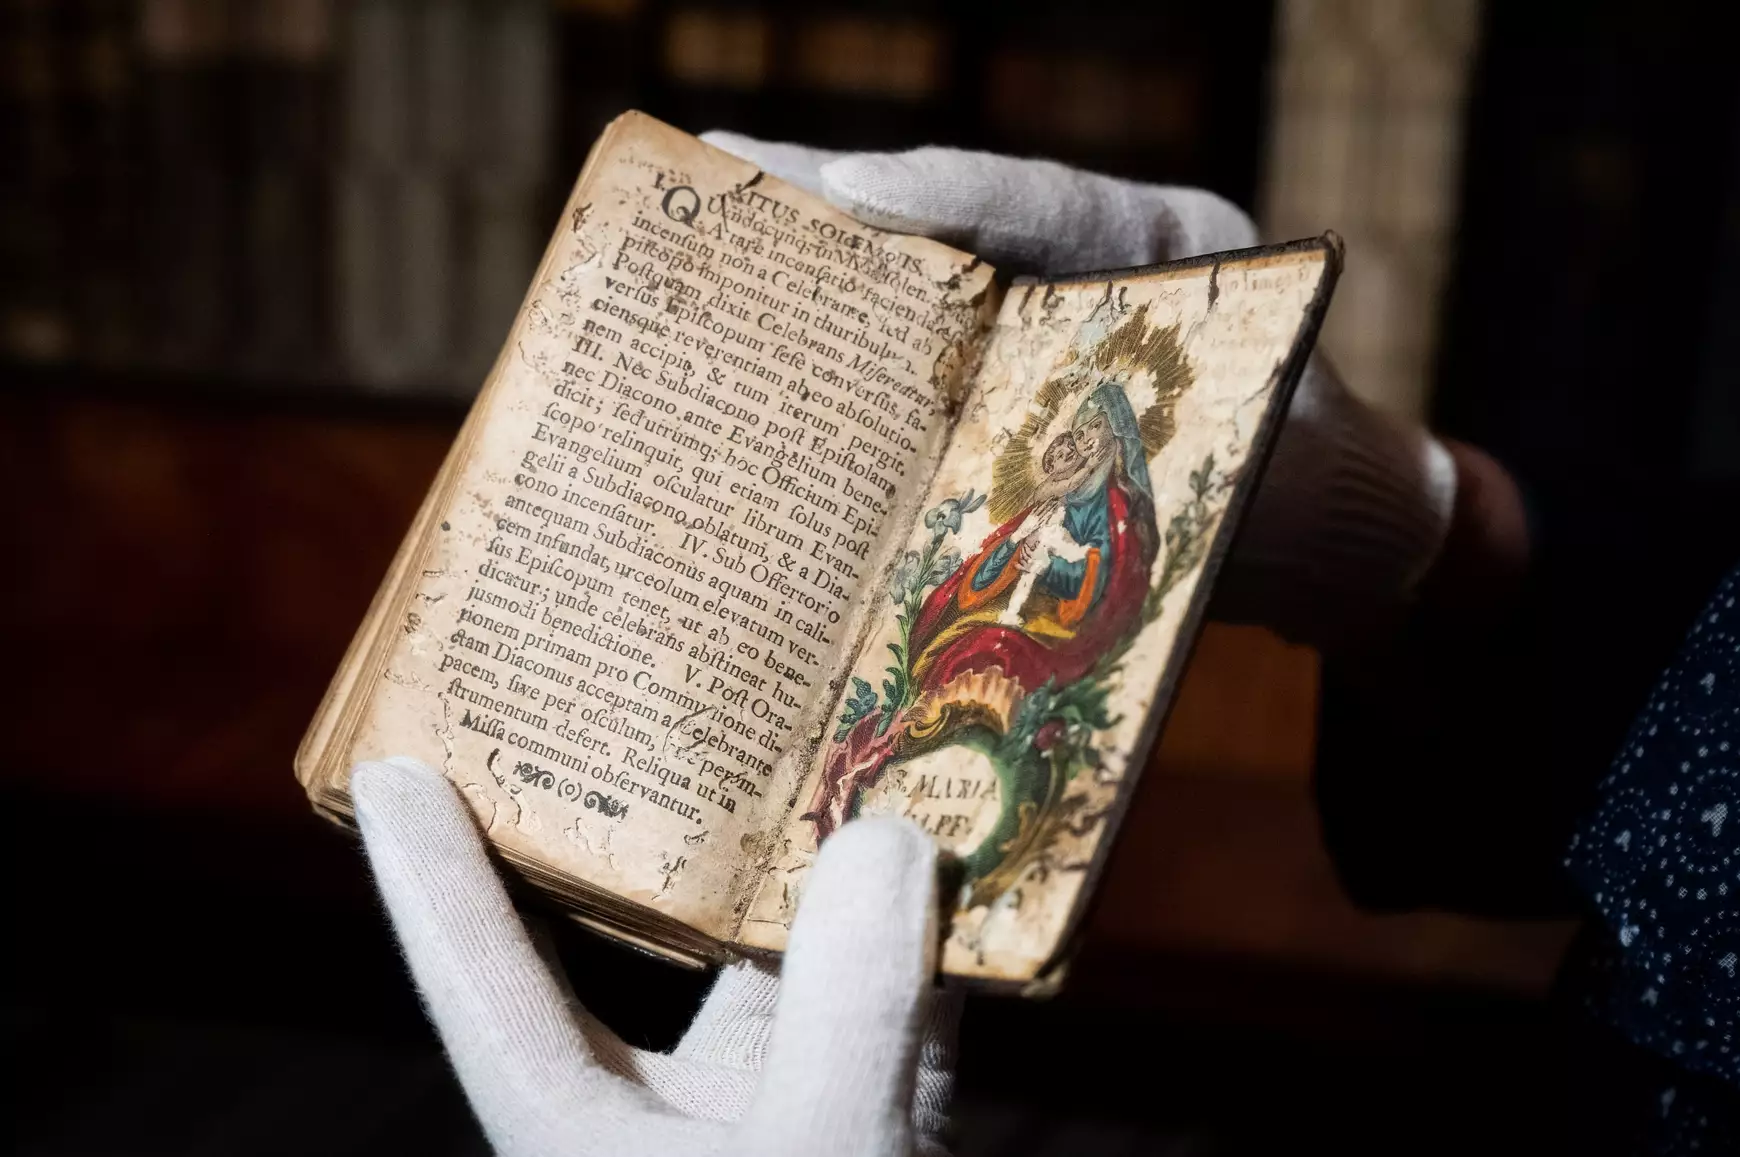 RITUS SOLEMNIS.
I. QUandocunq; in Missa solen.
A tari incensatio facienda
incensum non a Celebrante, sed ab E-
piscopo imponitur in thuribul
Postquam dixit Celebrans Misereatur,
versus Episcopum sese conversus, fa-
ciensque reverentiam ab eo absolutio-
nem accipit, & tum iterum pergit.
III. Nec Subdiacono post Epistolam
nec Diacono ante Evangelium bene-
dicit; sed utrumq; hoc Officium Epi-
scopo relinquit, qui etiam solus post
Evangelium osculatur librum Evan-
gelii a Subdiacono oblatum, & a Dia-
cono incensatur. IV. Sub Offertorio
antequam Subdiaconus aquam in cali-
cem infundat, urceolum elevatum ver-
sus Episcopum tenet, ut ab eo bene-
dicatur; unde celebrans abstineat hu-
jusmodi benedictione. V. Post Ora-
tionem primam pro Communione di-
ctam Diaconus acceptam a Celebrante
pacem, sive per osculum, per in-
strumentum defert. Reliqua ut in
Missa communi observantur.
(o)
S. MARIA